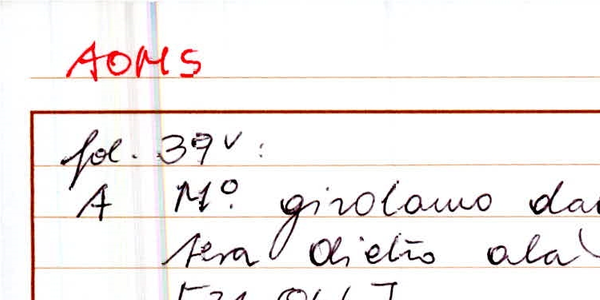 AOMS
fol. 39v:
A M° girolamo da
tera dietro ala